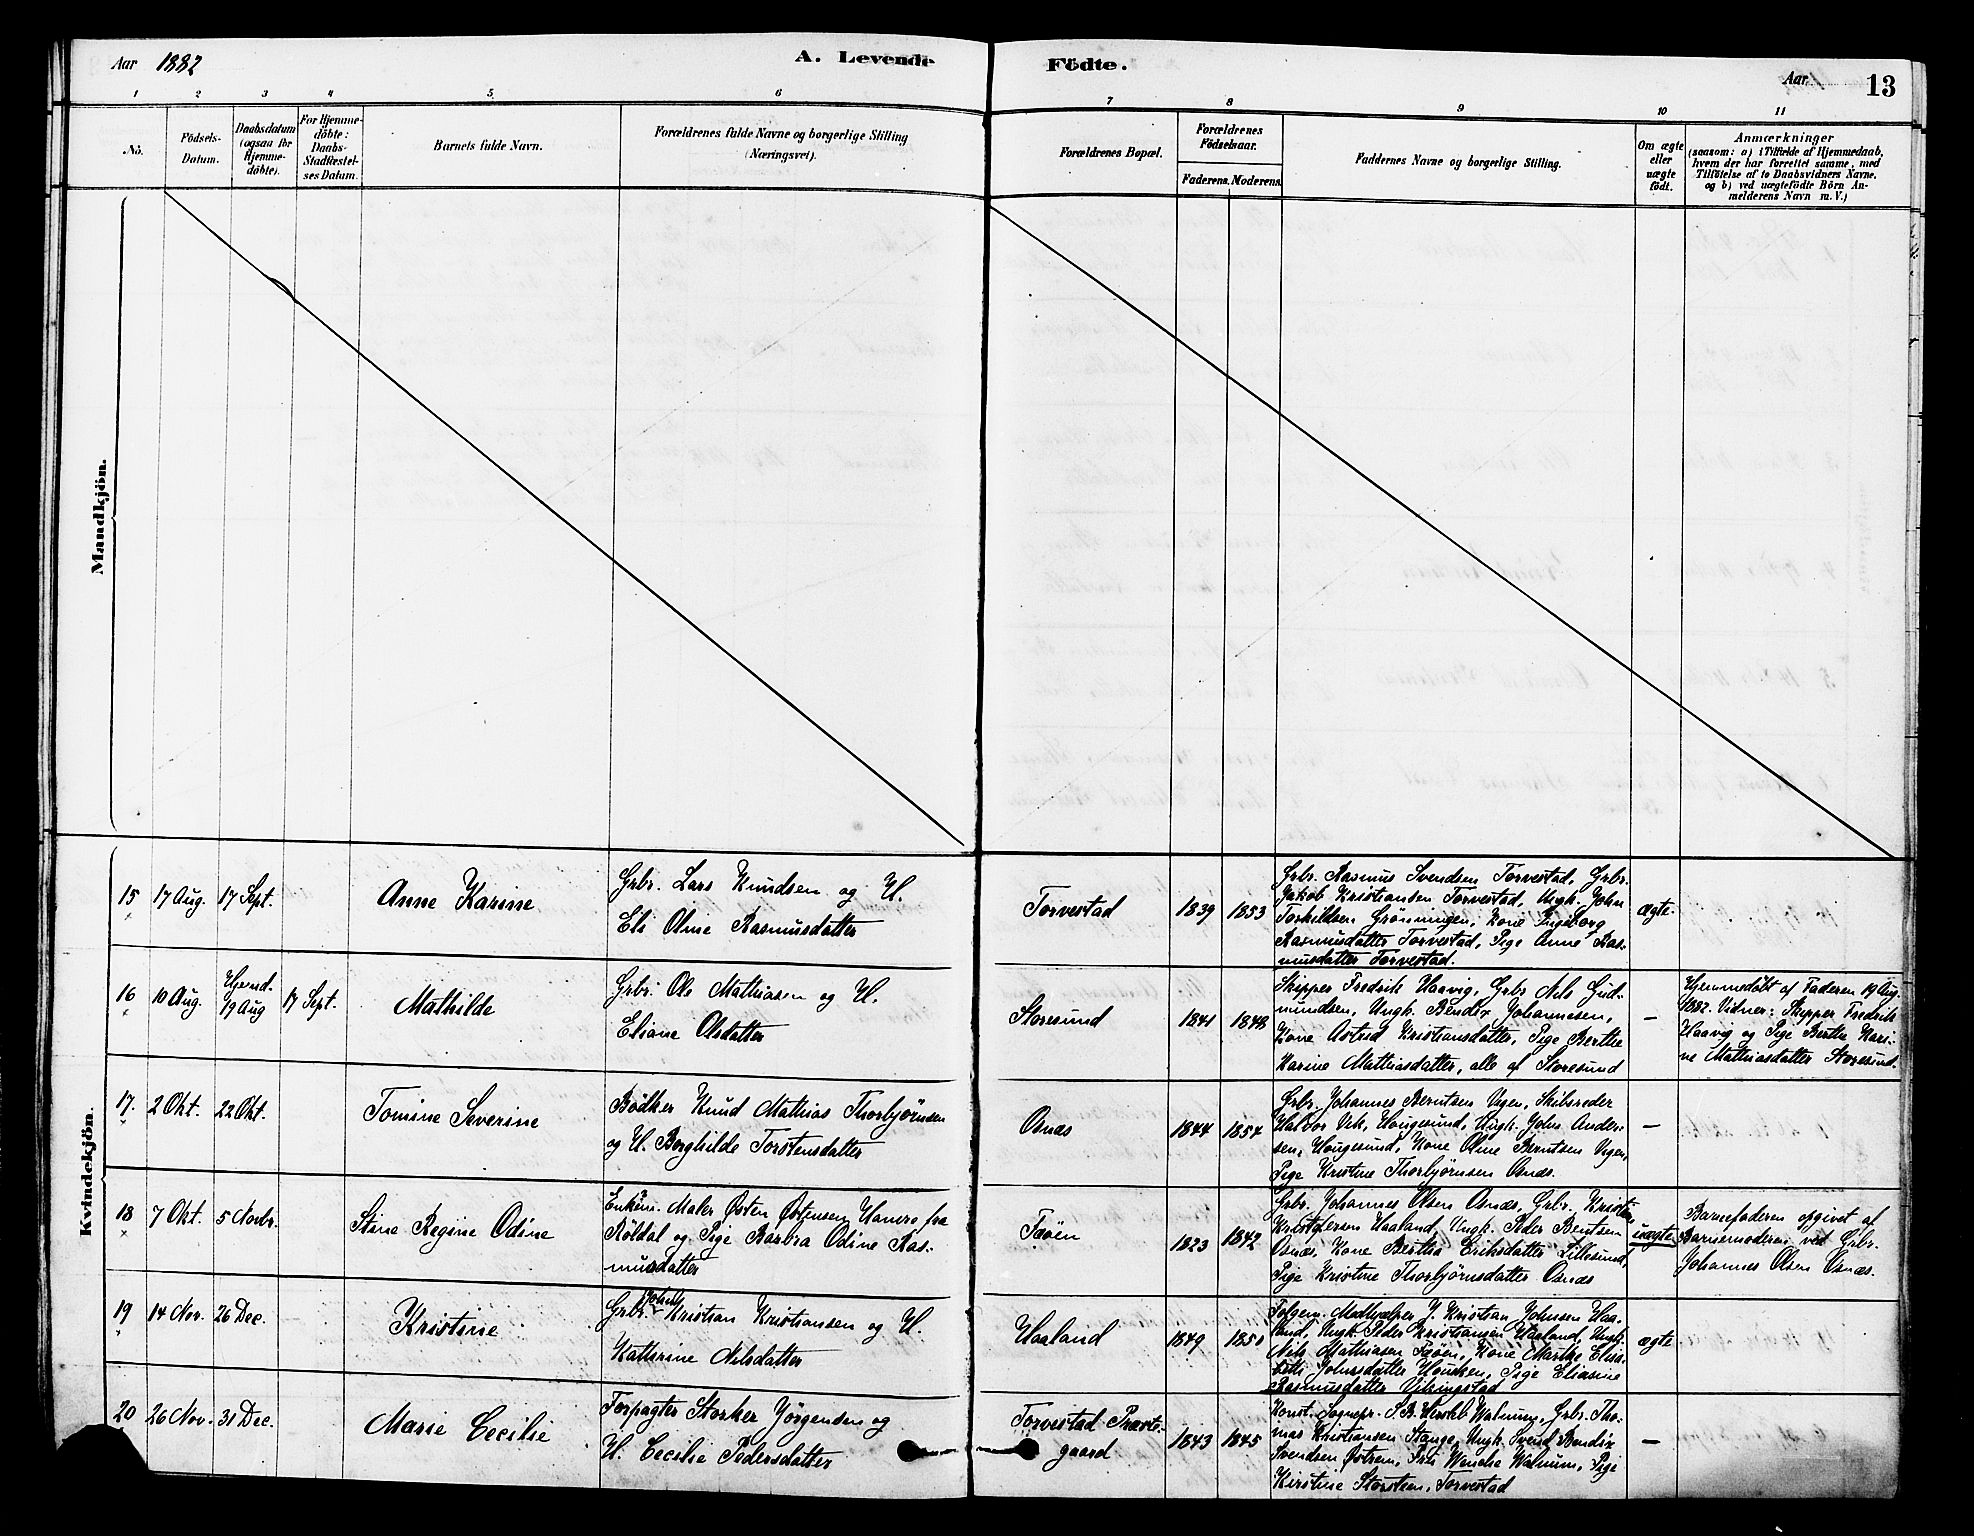 Aar 1882
A. Levende
Födte.
Aar
13
1 2 3 4 5 6 7 8 9 10 11
No.
Födsels-
Datum.
Daabsdatum
(ogsaa for
Hjemme-
döbte).
For Hjemme-
döbte:
Daabs-
Stadfæstel-
ses Datum.
Barnets fulde Navn.
Forældrenes fulde Navne og borgerlige Stilling
(Næringsvei).
Forældrenes Bopæl.
Forældrenes
Födselsaar.
Faderens. Moderens.
Faddernes Navne og borgerlige Stilling.
Om ægte
eller
uægte
födt.
Anmærkninger
(saasom: a) i Tilfælde af Hjemmedaab,
hvem der har forrettet samme, med
Tilföielse af to Daabsvidners Navne,
og b) ved uægtefödte Börn An-
melderens Navn m. V.)
Mandkjön.
Kvindekjön.
15
17 Aug.
17 Sept.
Anne Karine
Grbr. Lars Knudsen og H.
Eli Oline Rasmusdatter
Torvestad
1839
1853
Grbr. Rasmus Svendsen Torvestad, Grbr.
Jakob Kristiansen Torvestad, Ungk. John
Torkildsen Grönningen, Kone Ingeborg
Rasmusdatter Torvestad, Pige Anne Ras-
musdatter Torvestad.
Ægte.
16
10 Aug.
Hjemd.
19 Aug
17 Sept.
Mathilde
Grbr. Ole Mathiasen og H.
Eliane Olsdatter
Storesund
1841
1848
Skipper Fredrik Haavig, Grbr Nils Gud-
mundsen, Ungk. Bendix Johannesen,
Kone Astrid Kristiansdatter, Pige Berthe
Karine Mathiasdatter, alle af Storesund
—
Hjemmedöbt af Faderen 19 Aug.
1882. Vidner: Skipper Fredrik
Haavig og Pige Berthe Kari-
ne Mathiasdatter Storesund.
17.
2 Okt.
22 Okt.
Tomine Severine
Bödker Knud Mathias Thorbjörnsen
og H. Borghilde Torstensdatter
Osnæs
1844
1854
Grbr. Johannes Berntsen Vigen, Skibsreder
Halvor Vik, Haugesund, Ungk. John Ander-
sen, Haugesund, Kone Oline Berntsen Vigen,
Pige Kristine Thorbjörnsen Osnæs.
—
18
7 Okt.
5 Novbr.
Stine Regine Odine
Enkem. Maler Østen Østensen Hamre fra
Röldal og Pige Barbra Odine Ras-
musdatter
Føöen
1823
1842
Grbr. Johannes Olsen Osnæs, Grbr. Kristen
Kristofersen Haaland, Ungk. Peder Bentsen
Osnæs, Kone Bertha Eriksdatter Lillesund,
Pige Kristine Thorbjörnsdatter Osnæs
uægte
Barnefaderen opgivet af
Barnemoderen ved Grbr.
Johannes Olsen Osnæs.
19
14 Nov.
26 Dec.
Kristine
Grbr. Johan Kristian Kristiansen og H.
Kathrine Nilsdatter
Haaland
1849
1850
Folgem. Medhjælper J. Kristian Johnsen Haa-
land, Ungk. Peder Kristiansen Haaland, Ungk.
Nils Mathiasen Føöen, Kone Marthe Elisa-
beth Johnsdatter Hauken, Pige Eliasine
Rasmusdatter Vikingstad
ægte
20
26 Nov.
31 Dec.
Marie Cecilie
Forpagter Storker Jörgensen og
H. Cecilie Pedersdatter
Torvestad Præste-
gaard
1843
1845
Konst. Sognepr. Walnum, Grbr. Tho-
mas Kristiansen Stange, Ungk. Svend Bendix
Svendsen Østrem, Frk Wenche Walnum, Pige
Kirstine Storsteen, Torvestad
—